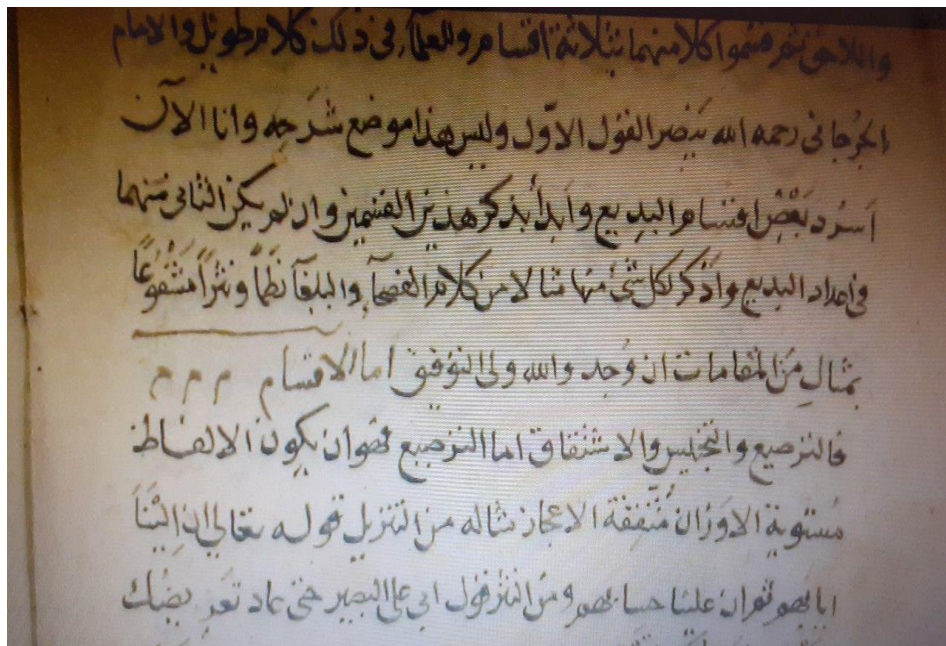 واللاحق ثم قسموا كلا منهما ثلاثة اقسام وللعلماء في ذلك كلام طويل والامام
الجُرجاني رحمه الله ينصر القول الاوّل وليس هذا موضع شَرحِه وانا الآن
اَسرُد بَعْضَ اقسام البديع وأبدأ بذكر هذين القسمين وان لم يكن الثاني منهما
في اعداد البديع واَذكر لكل شئ منها مثالا من كلام الفصحآء والبلغآء نظمًا ونثراً مَشْفُوعًا
بمثالٍ مِنَ المقامات ان وُجد والله ولي التوفيق اما الاقسام م م م
فالترصيع والتجنيس والاشتقاق اما الترصيع فهو ان يكون الالفاظ
مُستوية الاوزان مُتّفقة الاعجاز مثاله من التنزيل قوله تعالى ان اِلَيْنَا
ايابهم ثم ان علينا حسابهم ومن النثر قول ابي علي البصير حتى عاد تعر يضُك